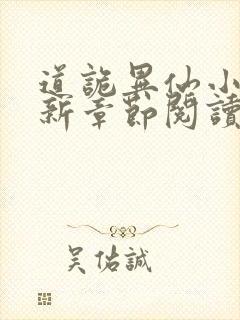 道詭異仙小
新章節閱讀
吴佑誠